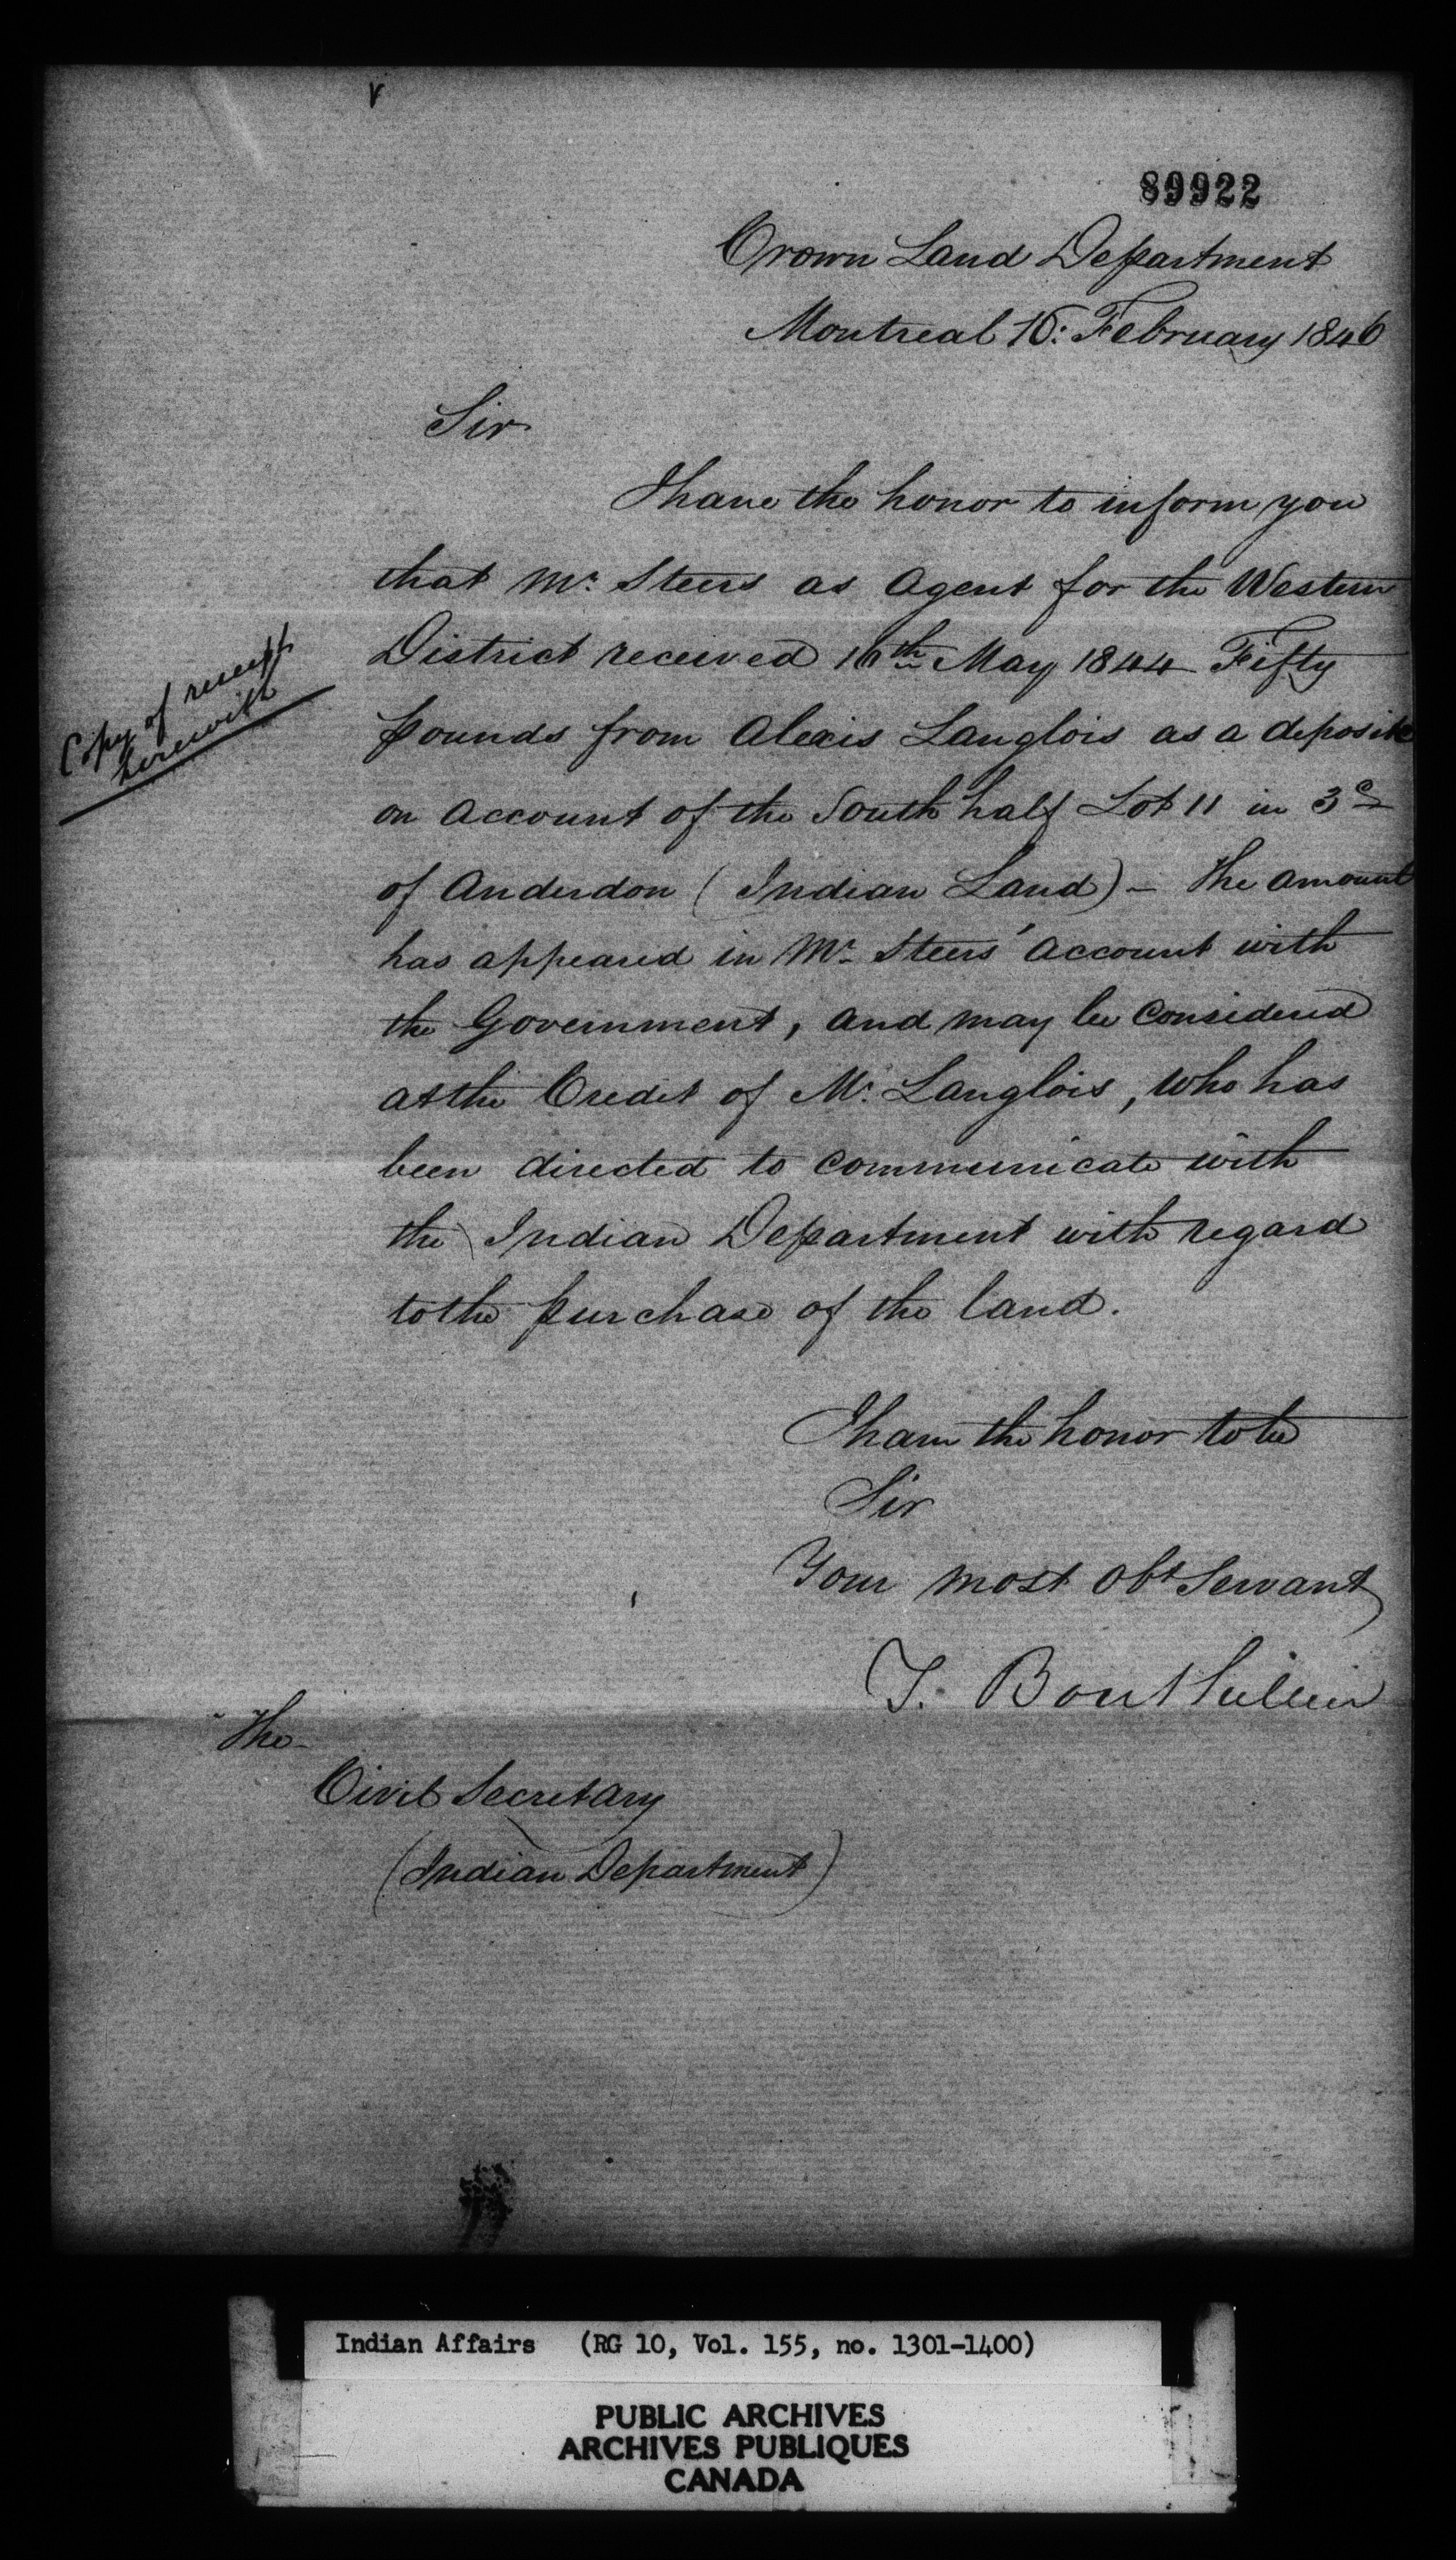 89922
Crown Land Department
Montreal 16: February 1846
Sir
I have the honor to inform you
that Mr. Steers as Agent for the Western
District received 16th May 1844 Fifty
pounds from Alexis Langlois as a deposit
Copy of receipt
herewith
on account of the South half Lot 11 in 3d
of Anderdon (Indian Land) – The amount
has appeared in Mr. Steers' account with
the Government, and may be considered
at the Credit of Mr. Langlois, who has
been directed to communicate with
the Indian Department with regard
to the purchase of the land.
I have the honor to be
Sir
Your most obt Servant
T. Bouthillier
The
Civil Secretary
(Indian Department)
Indian Affairs (RG 10, Vol. 155, no. 1301-1400)
PUBLIC ARCHIVES
ARCHIVES PUBLIQUES
CANADA